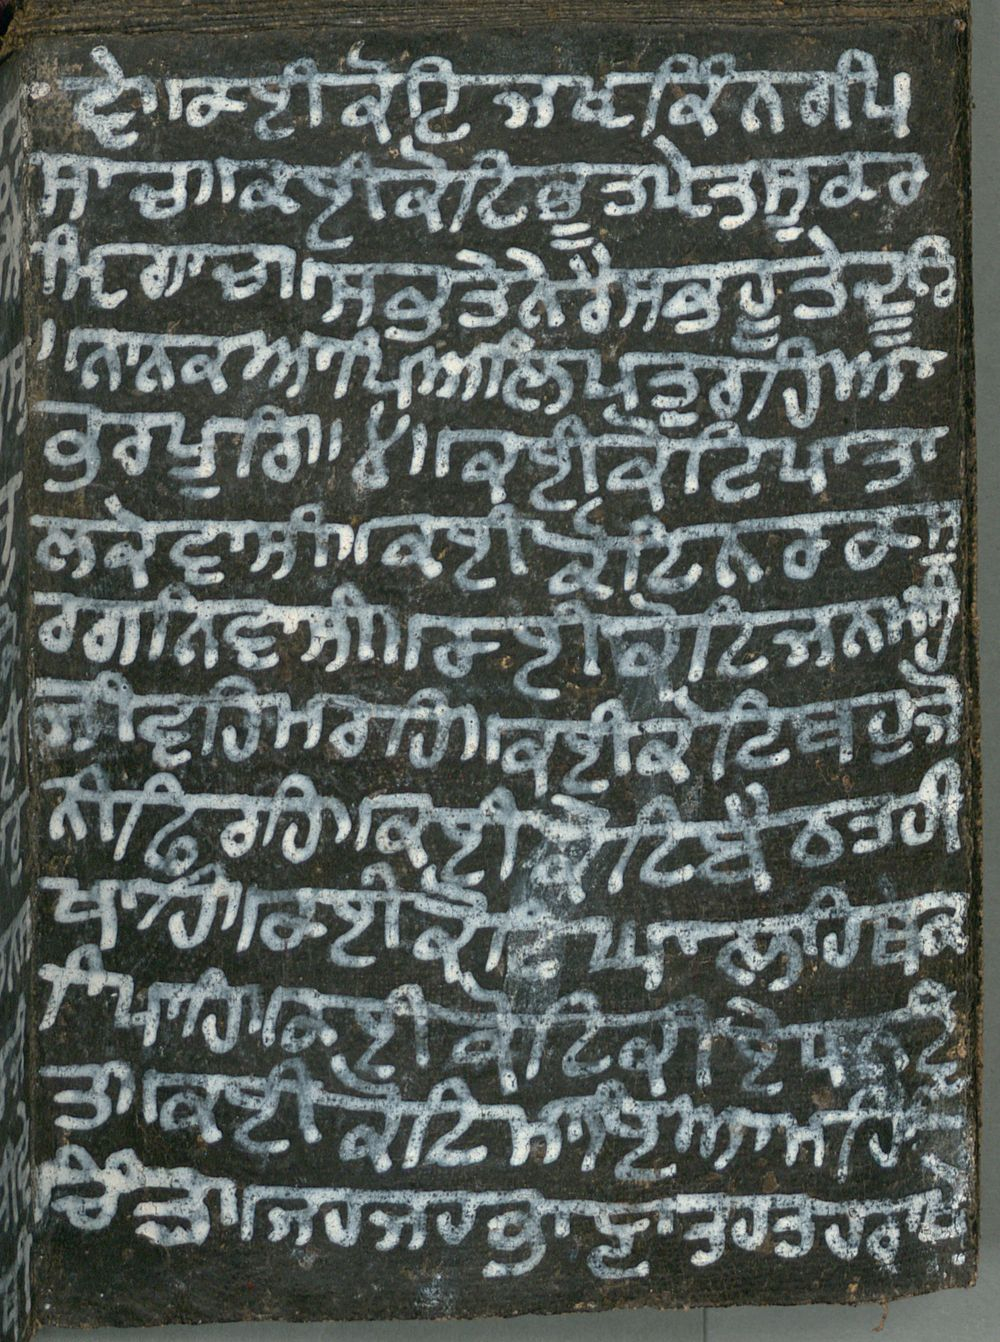 ਵੈ॥ ਕਈ ਕੋਟਿ ਜਖ ਕਿੰਨਰ ਪਿ
ਸਾਚ॥ ਕਈ ਕੋਟਿ ਭੂਤ ਪ੍ਰੇਤ ਸੂਕਰ
ਮ੍ਰਿਗਾਚ॥ ਸਭ ਤੇ ਨੇਰੈ ਸਭਹੂ ਤੇ ਦੂਰਿ
॥ ਨਾਨਕ ਆਪਿ ਅਲਿਪਤੁ ਰਹਿਆ
ਭਰਪੂਰਿ॥੪॥ ਕਈ ਕੋਟਿ ਪਾਤਾ
ਲ ਕੇ ਵਾਸੀ॥ ਕਈ ਕੋਟਿ ਨਰਕ ਸੁ
ਰਗ ਨਿਵਾਸੀ॥ ਕਈ ਕੋਟਿ ਜਨਮਹਿ
ਜੀਵਹਿ ਮਰਹਿ॥ ਕਈ ਕੋਟਿ ਬਹੁ ਜੋ
ਨੀ ਫਿਰਹਿ॥ ਕਈ ਕੋਟਿ ਬੈਠਤ ਹੀ
ਖਾਹਿ॥ ਕਈ ਕੋਟਿ ਘਾਲਹਿ ਥਕ
ਿ ਪਾਹਿ॥ ਕਈ ਕੋਟਿ ਕੀਏ ਧਨਵੰ
ਤ॥ ਕਈ ਕੋਟਿ ਮਾਇਆ ਮਹਿ
ਚਿੰਤ॥ ਜਹ ਜਹ ਭਾਣਾ ਤਹ ਤਹ ਰਾਖੇ